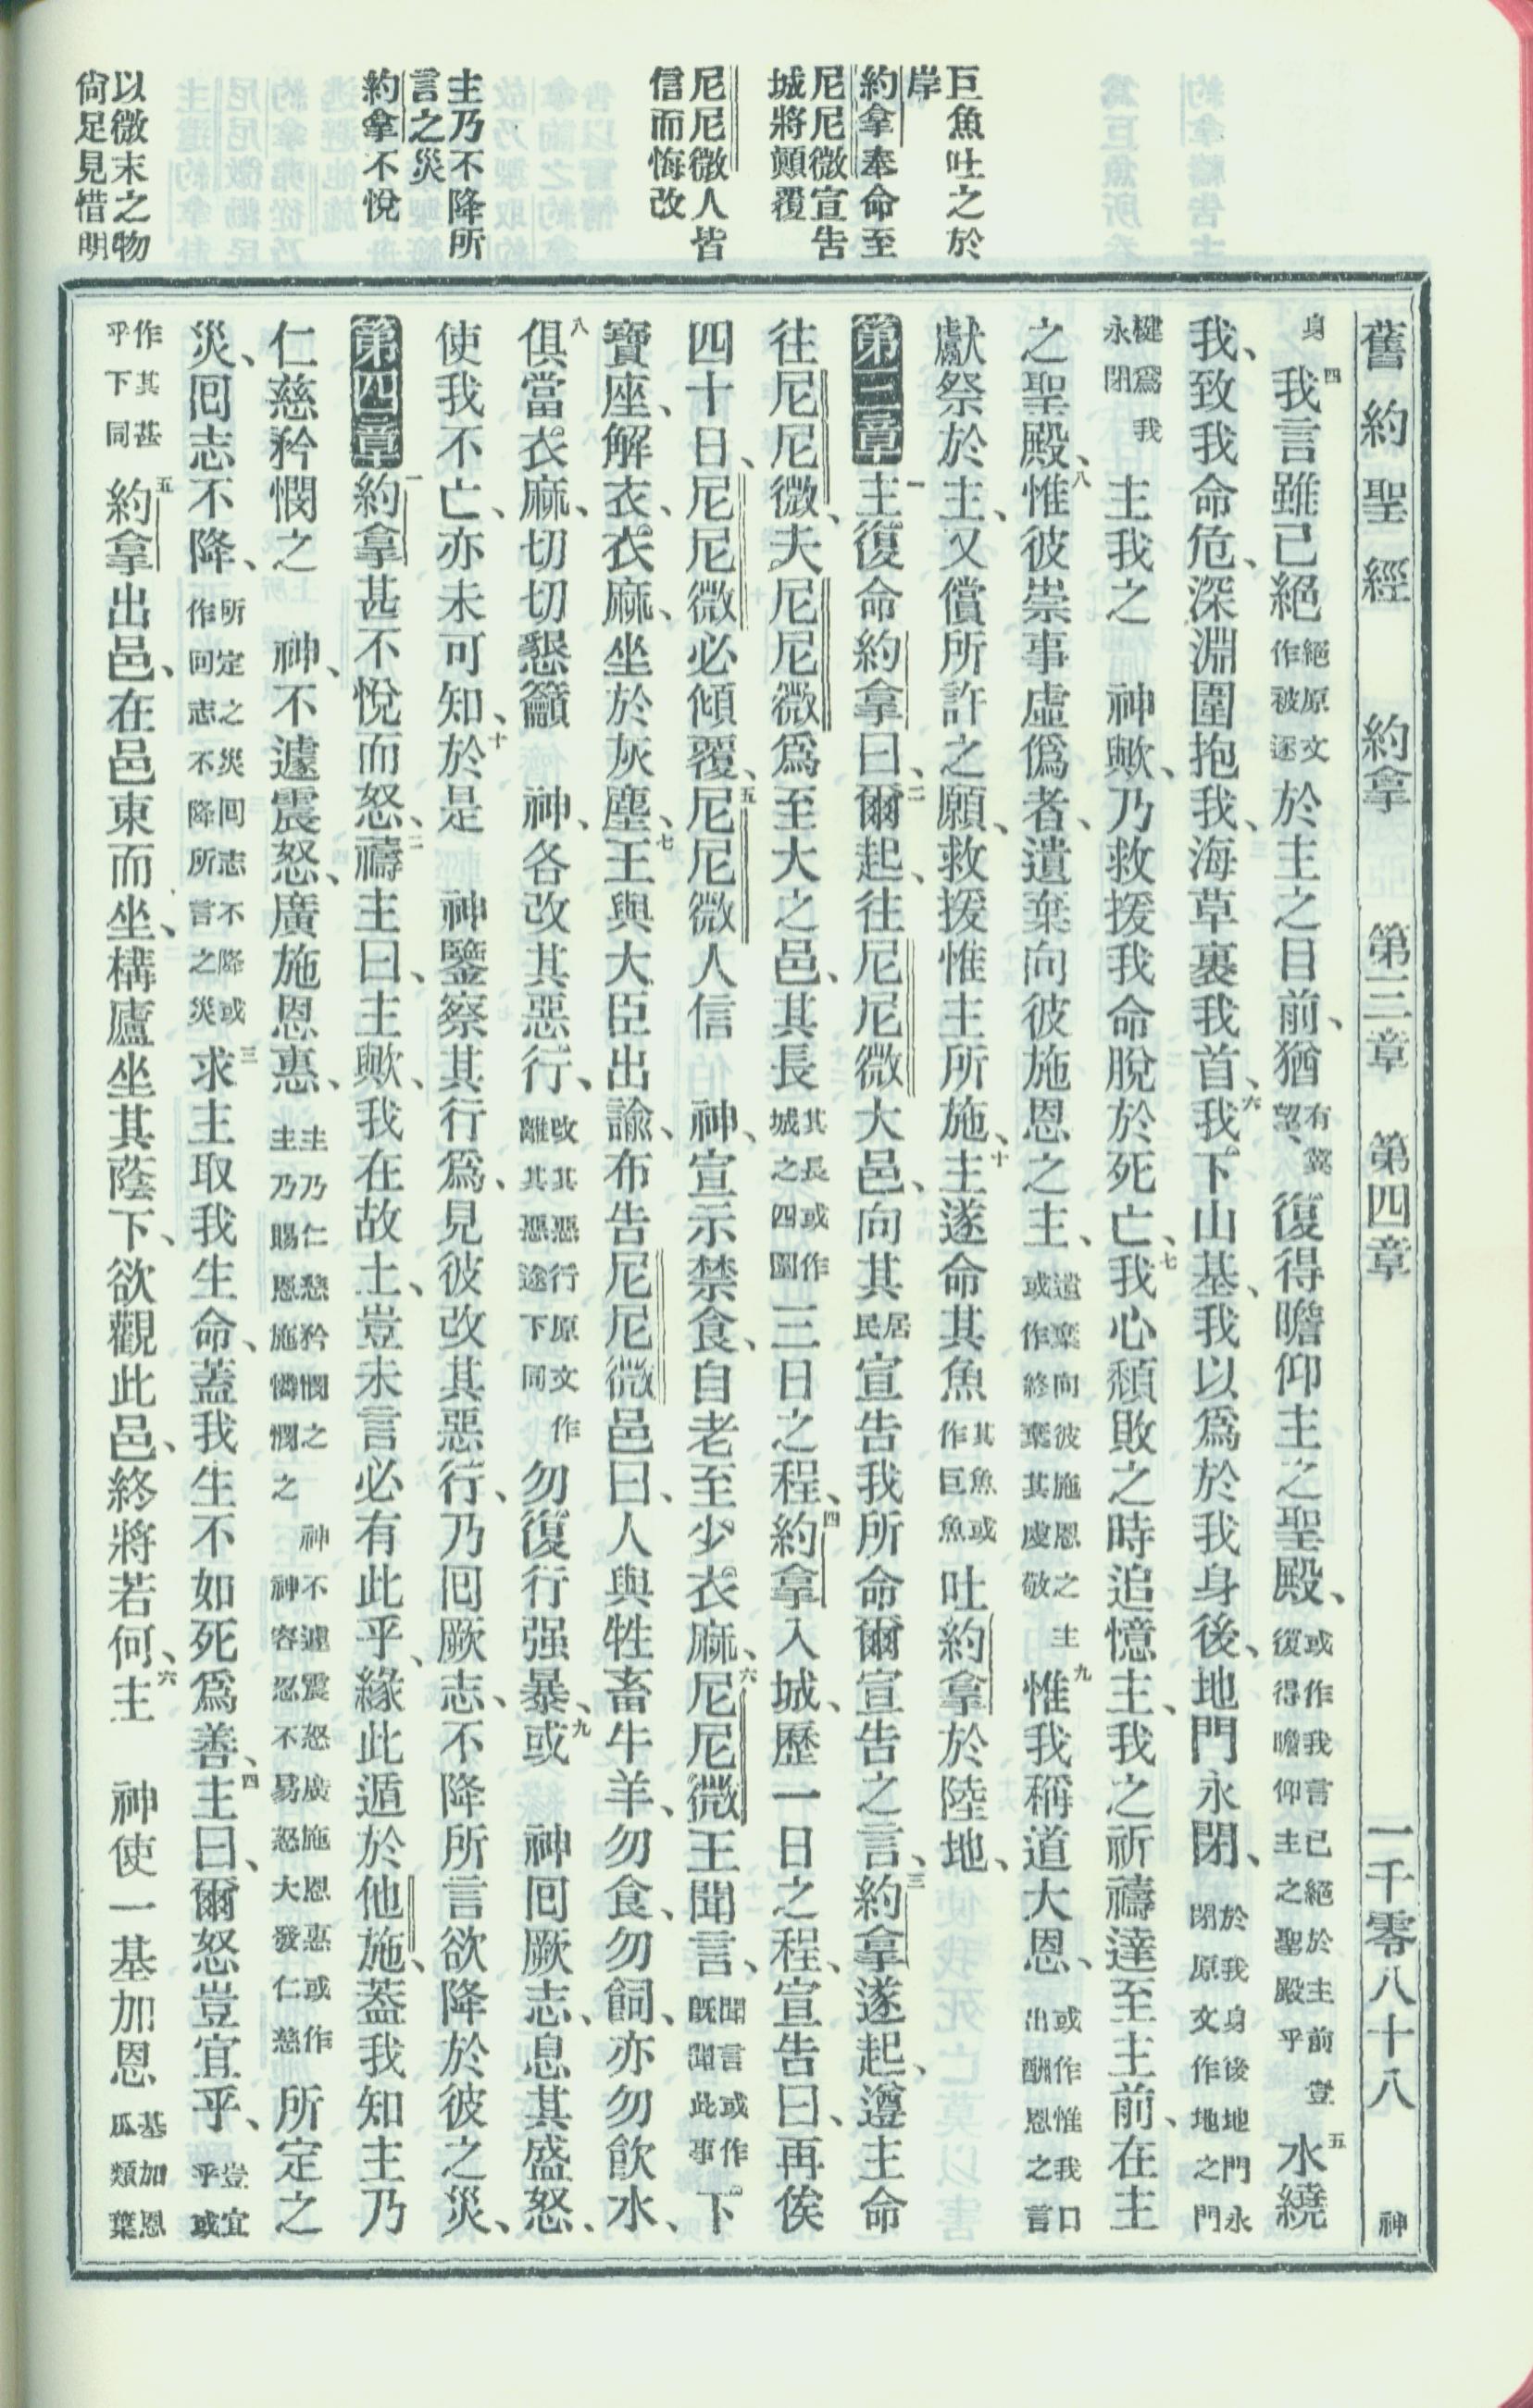 舊約聖經 約拿 第三章 第四章 一千零八十八 神
巨魚吐之於
岸
約拿奉命至
尼尼微宣告
城將顚覆
尼尼微人皆
信而悔改
主乃不降所
言之災
約拿不悅
以微末之物
尙足見惜明
身四我言雖已絕絕原文作被逐於主之目前、猶有冀望、復得瞻仰主之聖殿、或作我言已絕於主前豈復得瞻仰主之聖殿乎五水繞
我、致我命危、深淵圍抱我、海草裹我首、六我下山基、我以爲於我身後、地門永閉、於我身後地門永閉原文作地之門
楗爲我永閉主我之 神歟、乃救援我命脫於死亡、七我心頹敗之時追憶主、我之祈禱達至主前、在主
之聖殿、八惟彼崇事虛僞者、遺棄向彼施恩之主、遺棄向彼施恩之主或作終棄其虔敬九惟我稱道大恩、或作惟我口出酬恩之言
獻祭於主、又償所許之願、救援惟主所施、十主遂命其魚其魚或作巨魚吐約拿於陸地、
第三章一主復命約拿曰、二爾起、往尼尼微大邑、向其居民宣告我所命爾宣告之言、三約拿遂起、遵主命
往尼尼微、夫尼尼微爲至大之邑、其長其長或作城之四圍三日之程、四約拿入城、歷一日之程、宣告曰、再俟
四十日、尼尼微必傾覆、五尼尼微人信 神、宣示禁食、自老至少。衣麻、六尼尼微王聞言、聞言或作旣聞此事下。
寶座、解衣。衣麻、坐於灰塵、七王與大臣出諭、布告尼尼微邑曰、人與牲畜牛羊、勿食、勿飼、亦勿飲水、
八俱當。衣麻、切切懇籲 神、各改其惡行、改其惡行原文作離其惡途下同勿復行强暴、九或 神囘厥志、息其盛怒、
使我不亡、亦未可知、十於是 神鑒察其行爲、見彼改其惡行、乃囘厥志、不降所言欲降於彼之災、
第四章一約拿甚不悅而怒、二禱主曰、主歟、我在故土、豈未言必有此乎、緣此遁於他施、蓋我知主乃
仁慈矜憫之 神、不遽震怒、廣施恩惠、主乃仁慈矜憫之神不遽震怒廣施恩惠或作主乃賜恩施憐憫之神容忍不易怒大發仁慈所定之
災、囘志不降、所定之災囘志不降或作囘志不降所言之災三求主取我生命、蓋我生不如死爲善、四主曰、爾怒豈宜乎、豈宜乎或
作其甚乎下同五約拿出邑、在邑東而坐、構廬坐其蔭下、欲觀此邑、終將若何、六主 神使一基加恩基加恩瓜類葉